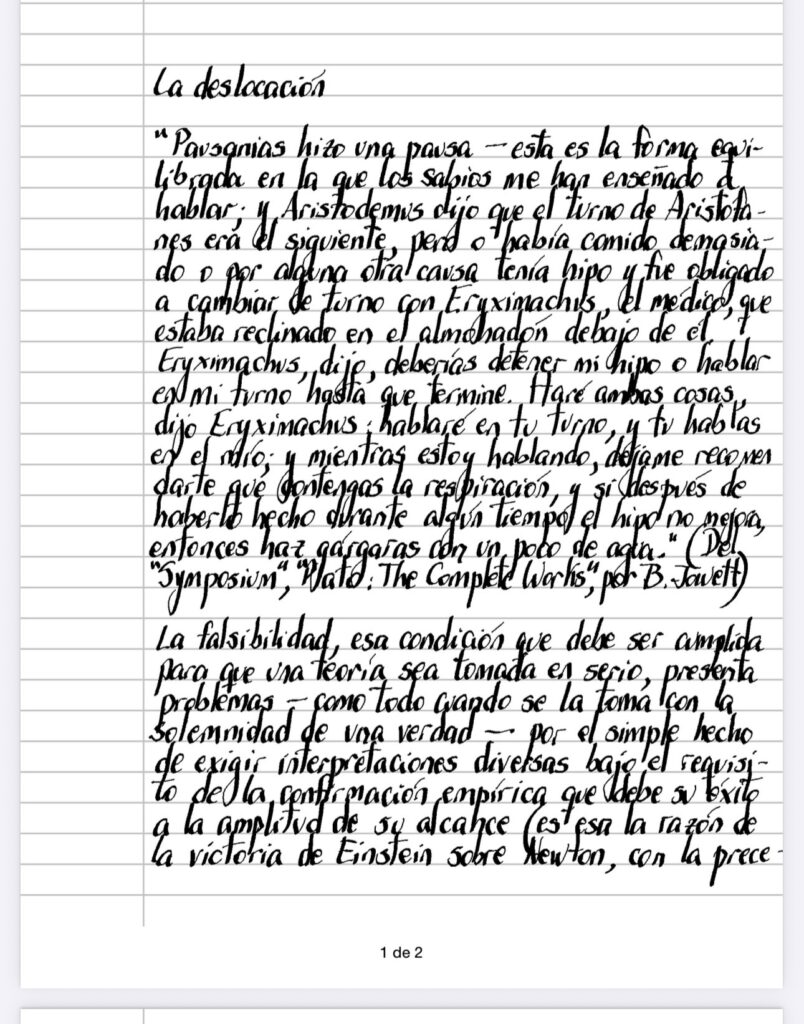 La deslocación
"Pausanias hizo una pausa — esta es la forma equi-
librada en la que los sabios me han enseñado a
hablar; y Aristodemus dijo que el turno de Aristófa-
nes era el siguiente, pero o había comido demasia-
do o por alguna otra causa tenía hipo y fue obligado
a cambiar de turno con Eryximachus, el médico, que
estaba reclinado en el almohadón debajo de él.
Eryximachus, dijo, deberías detener mi hipo o hablar
en mi turno hasta que termine. Haré ambas cosas,
dijo Eryximachus: hablaré en tu turno, y tu hablas
en el mío; y mientras estoy hablando, déjame recomen
darte que contengas la respiración, y si después de
haberlo hecho durante algún tiempo el hipo no mejora,
entonces haz gárgaras con un poco de agua." (Del
"Symposium", "Plato: The Complete Works", por B. Jowett)
La falsibilidad, esa condición que debe ser cumplida
para que una teoría sea tomada en serio, presenta
problemas — como todo cuando se la toma con la
solemnidad de una verdad — por el simple hecho
de exigir interpretaciones diversas bajo el requisi-
to de la confirmación empírica que debe su éxito
a la amplitud de su alcance (es esa la razón de
la victoria de Einstein sobre Newton, con la prece-
1 de 2